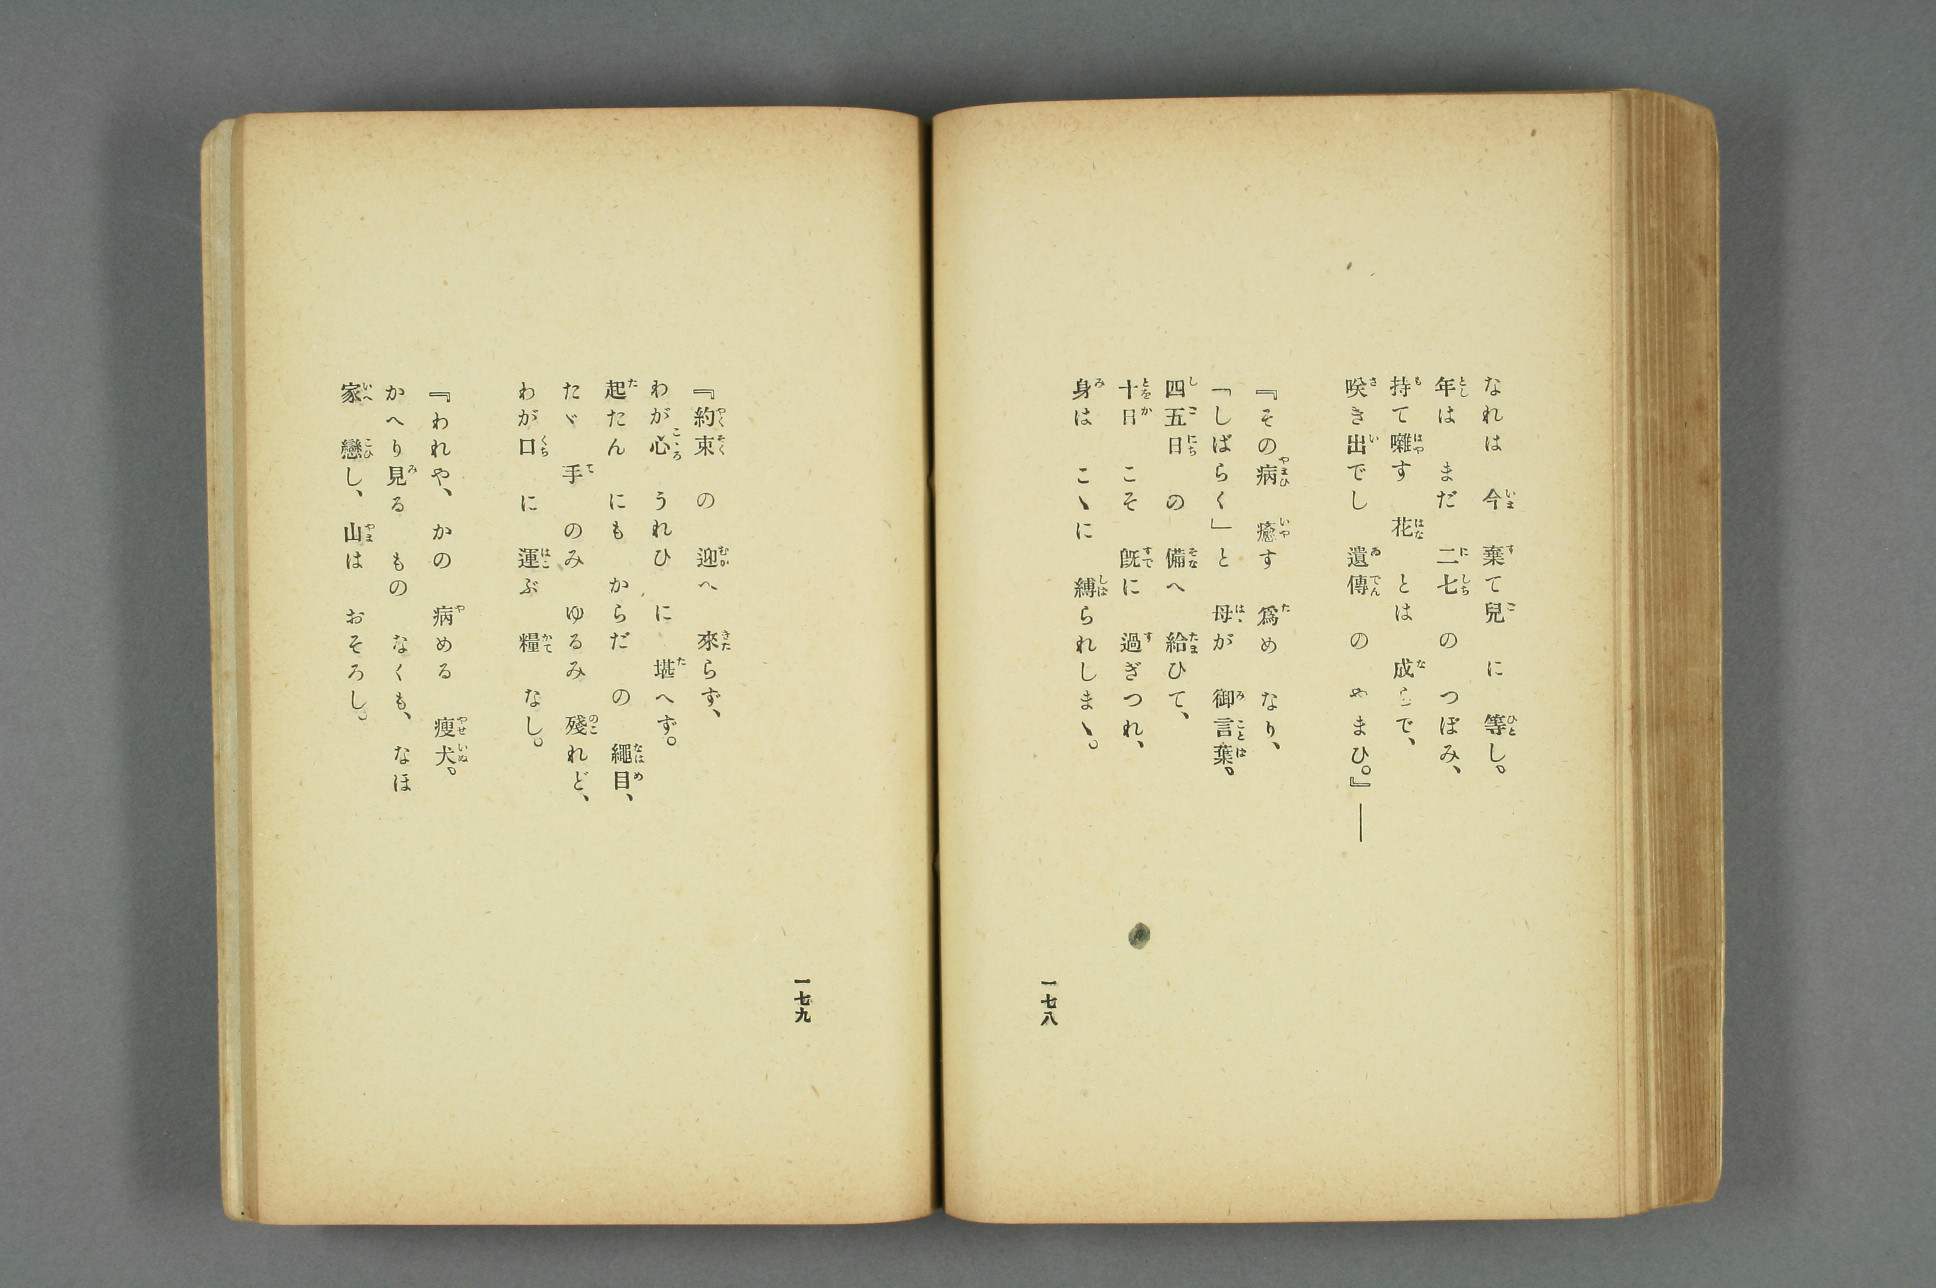 なれは 今 棄て兒 に 等し。
年は まだ 二七 の つぼみ、
持て囃す 花 とは 成らで、
咲き出でし 遺傳 の やまひ。』――
『その病 癒す 爲め なり、
「しばらく」と 母が 御言葉。
四五日 の 備へ 給ひて、
十日 こそ 既に 過ぎつれ、
身は こゝに 縛られしまゝ。
一七八
『約束 の 迎へ 來らず、
わが心 うれひ に 堪へず。
起たん にも からだ の 繩目、
たゞ 手 のみ ゆるみ 殘れど、
わが口 に 運ぶ 糧 なし。
『われや、かの 病める 瘦犬。
かへり見る もの なくも、なほ
家 戀し、山は おそろし。
一七九